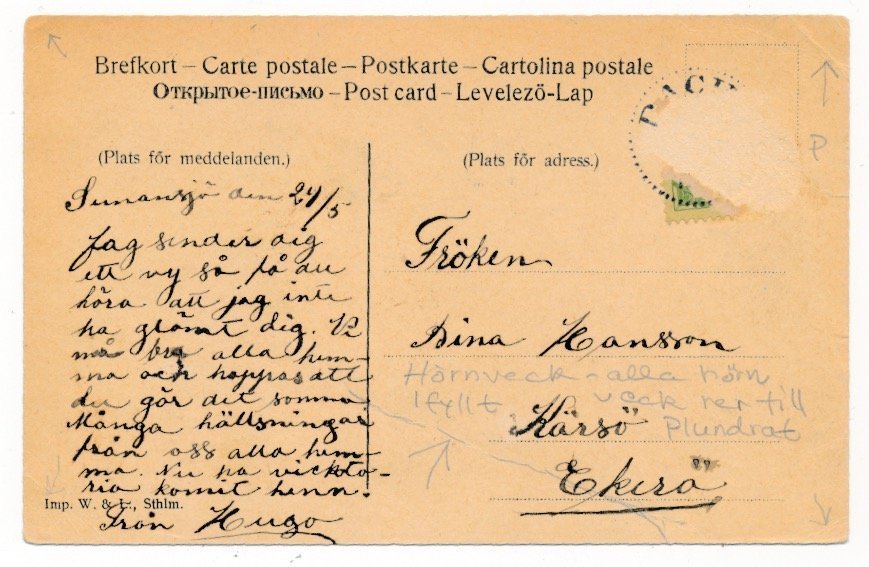 Brefkort – Carte postale – Postkarte – Cartolina postale
Открытое-письмо – Post card – Levelezö-Lap
(Plats för meddelanden.)
Sunansjö den 24/5
Jag sender dig
ett vy så få du
höra att jag inte
ha glömt dig. Vi
må bra alla hem-
ma och hoppas att
du gör det somma
Många hällsningar
från oss alla hem-
ma. Nu ha vickto-
ria komit henn.
Från Hugo
Imp. W. & L., Sthlm.
(Plats för adress.)
Fröken
Dina Hansson
Kärsö
Ekerö
P
Hörnveck - alla hörn
Ifyllt veck ner till
Plundrat